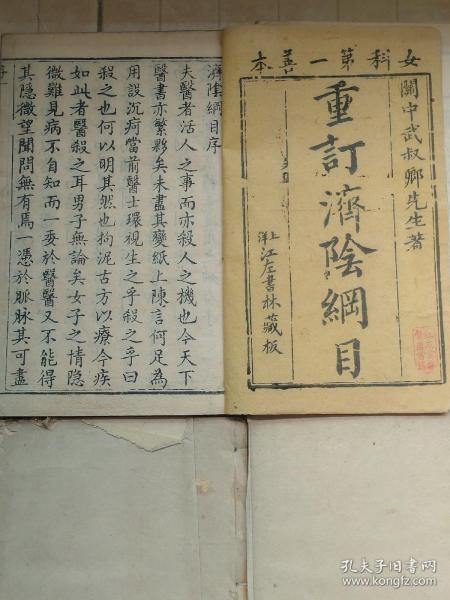 女科第一善本
關中武叔卿先生著
重訂濟陰綱目
上洋江左書林藏板
濟陰綱目序
夫醫者活人之事而亦殺人之機也今天下
醫書亦繁夥矣未盡其變紙上陳言何足為
用設沉疴當前醫士環視生之乎殺之乎曰
殺之也何以明其然也拘泥古方以療今疾
如此者醫殺之耳男子無論矣女子之情隐
微難見病不自知而一委於醫醫又不能得
其隐微望聞問無有焉一憑於脈脈其可盡
孔夫子旧书网
www.kongfz.com